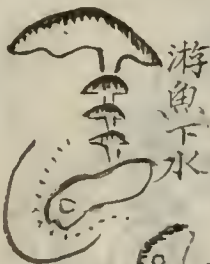 游魚下水